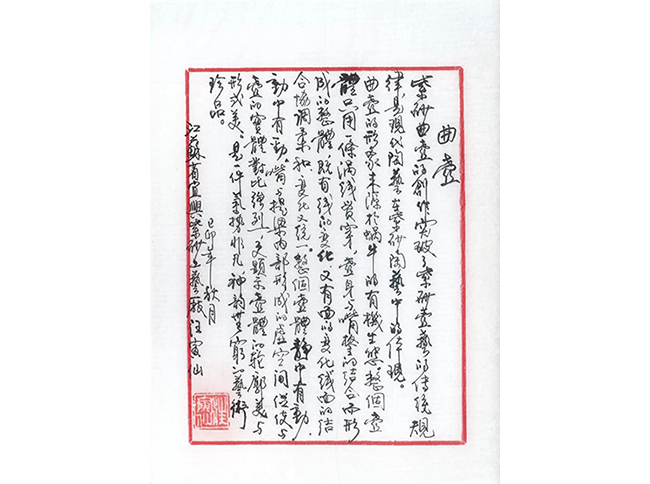 曲壺
紫砂曲壺的創作突破了紫砂壺藝的传統規
律是現代陶藝在紫砂陶藝中的体現。
曲壺的形象来源於蝸牛的有機生態整個壺
體只用一條渦线貫穿，壺身与嘴把的结合而形
成的整體，既有线的变化又有面的变化线面的结
合協調柔和变化又统一。整個壺體靜中有動，
動中有静。嘴与提梁内部形成的虚空间從使与
壺的實體對比强烈，更顯示壺體的轮廓美与
形式美、是一件氣势非凡神韵無窮的藝術
珍品。
己卯年秋月
江苏省宜興紫砂工藝厰汪寅仙
汪寅仙